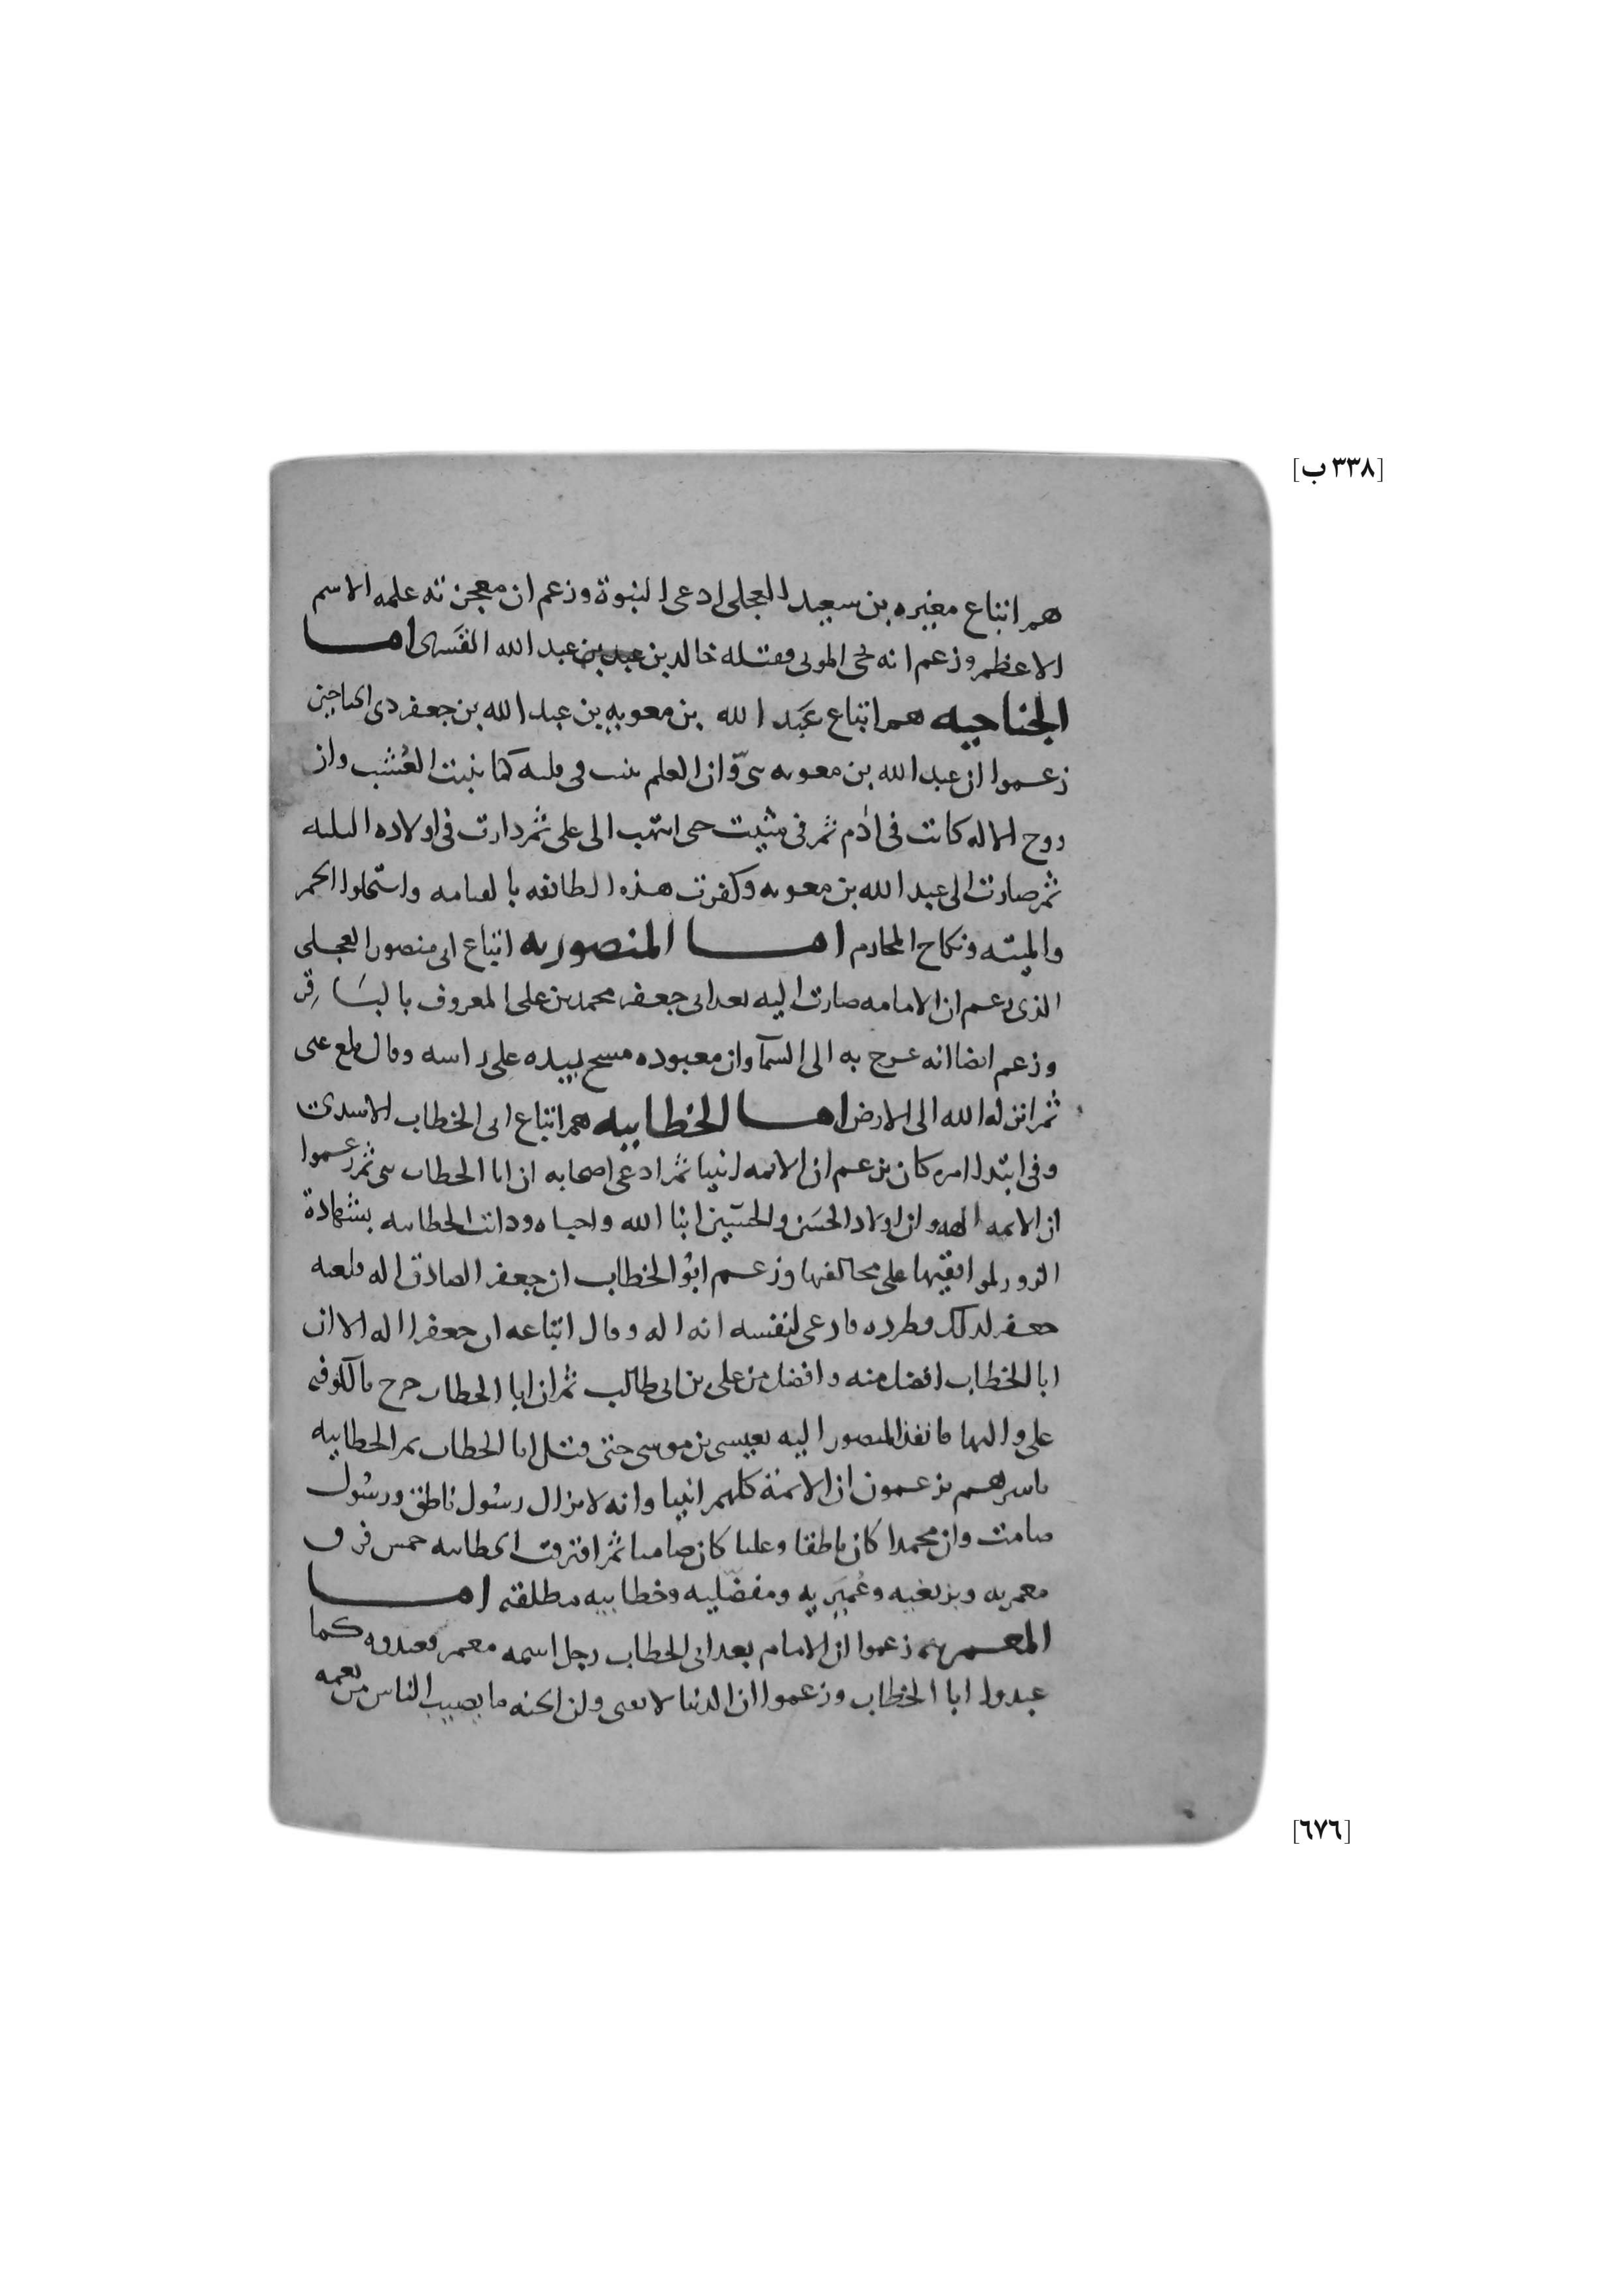 [٣٣٨ ب]
هم اتباع مغيره بن سعيد العجلى ادعى النبوة وزعم ان معجزته علمه الاسم
الاعظم وزعم انه يحى الموتى فقتله خالد بن عبد الله القسرى اما
الجناحيه هم اتباع عبد الله بن معويه بن عبد الله بن جعفر دى الجناحين
زعموا ان عبد الله بن معويه نبى وان العلم ينبت فى قلبه كما ينبت العشب وان
روح الاله كانت فى ادم ثم فى شيث حتى انتهت الى على ثم دارت فى اولاده الثلثه
ثم صارت الى عبد الله بن معويه وكفرت هذه الطائفه بالقيامه واستحلوا الخمر
والميته ونكاح المحارم اما المنصوريه اتباع ابى منصور العجلى
الذى زعم ان الامامه صارت اليه بعد ابى جعفر محمد بن على المعروف بالباقر
وزعم ايضا انه عرج به الى السمآ وان معبوده مسح بيده على راسه وقال بلغ عنى
ثم انزله الله الى الارض اما الخطابيه هم اتباع ابى الخطاب الاسدى
وفى ابتدا امره كان يزعم ان الائمه انبيا ثم ادعى اصحابه ان ابا الخطاب نبى ثم زعموا
ان الائمه الهه وان اولاد الحسن والحسين ابنا الله واحباه ودانت الخطابيه بشهادة
الزور لموافقيها على مخالفيها وزعم ابو الخطاب ان جعفر الصادق اله فلعنه
جعفر لذلك وطرده فادعى لنفسه انه اله وقال اتباعه ان جعفرا اله الا ان
ابا الخطاب افضل منه وافضل من على بن ابى طالب ثم ان ابا الخطاب خرج بالكوفه
على واليها فانفذ المنصور اليه بعيسى بن موسى حتى قتل ابا الخطاب ثم الخطابيه
باسرهم يزعمون ان الائمة كلهم انبيا وانه لا يزال رسول ناطق ورسول
صامت وان محمدا كان ناطقا وعليا كان صامتا ثم افترقت الخطابيه خمس فرق
معمريه وبزيغيه وعميريه ومفضليه وخطابيه مطلقه اما
المعمريه زعموا ان الامام بعد ابى الخطاب رجل اسمه معمر فعبدوه كما
عبدوا ابا الخطاب وزعموا ان الدنيا لا تفنى وان الجنه ما يصيب الناس من نعمه
[٦٧٦]